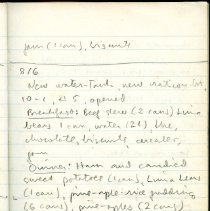 jam (1 can), biscuits
8/6
New water-tank, new ration box,
10-1, # 5, opened
Breakfast: Beef stew (2 cans) Lima
beans 1 can, water (2 l), tea,
chocolate, biscuits, cereal,
jam
Dinner: Ham and candied
sweet potatoes (1 can), Lima beans
(1 can), pine-apple-rice pudding
(6 cans), pine-apples (2 cans)